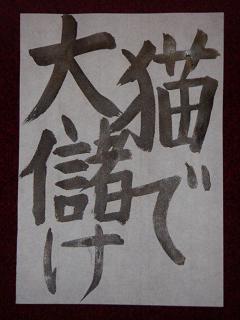 猫で
大儲け